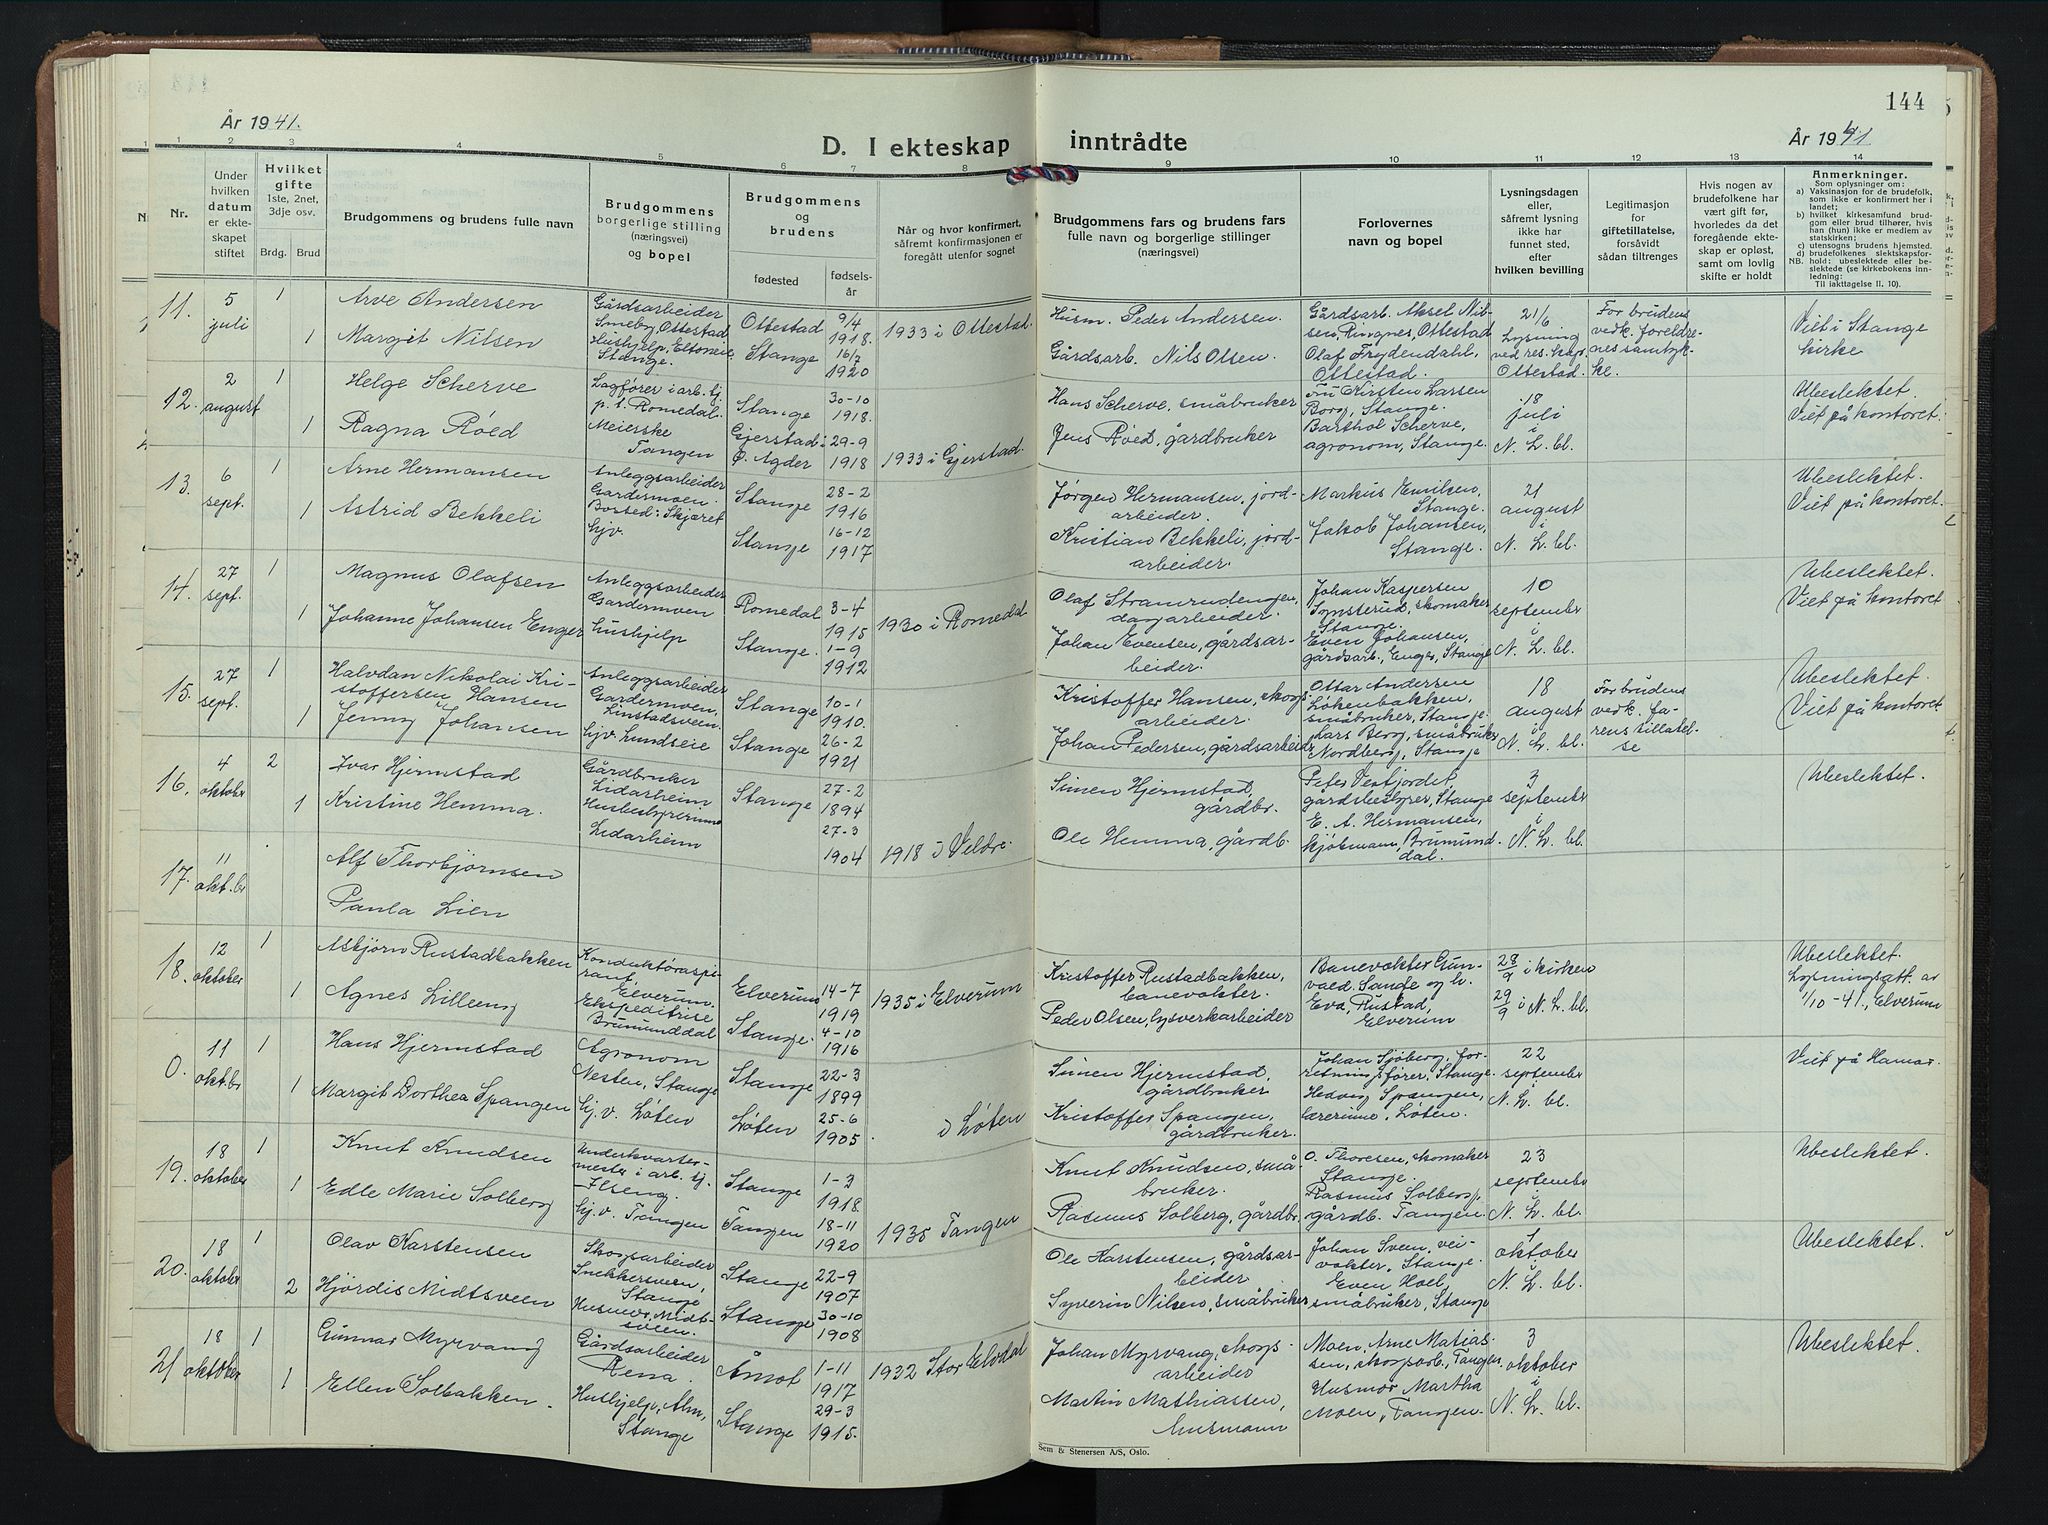 144
År 1941.
D. I ekteskap inntrådte
År 1941
1 2 3 4 5 6 7 8 9 10 11 12 13 14
Nr.
Under hvilken datum er ekteskapet stiftet
Hvilket gifte 1ste, 2net, 3dje osv.
Brdg. Brud
Brudgommens og brudens fulle navn
Brudgommens borgerlige stilling (næringsvei) og bopel
Brudgommens og brudens
fødested
fødselsår
Når og hvor konfirmert, såfremt konfirmasjonen er foregått utenfor sognet
Brudgommens fars og brudens fars fulle navn og borgerlige stillinger (næringsvei)
Forlovernes navn og bopel
Lysningsdagen eller, såfremt lysning ikke har funnet sted, efter hvilken bevilling
Legitimasjon for giftetillatelse, forsåvidt sådan tiltrenges
Hvis nogen av brudefolkene har vært gift før, hvorledes da det foregående ekteskap er opløst, samt om lovlig skifte er holdt
Anmerkninger.
Som oplysninger om:
a) Vaksinasjon for de brudefolk, som ikke er konfirmert her i landet;
b) hvilket kirkesamfund brudgom eller brud tilhører, hvis han (hun) ikke er medlem av statskirken;
c) utensogns brudens hjemsted.
d) brudefolkenes slektskapsforhold: ubeslektede eller beslektede (se kirkebokens innledning;
NB. Til iakttagelse II. 10).
11. 5 juli 1 Arve Andersen Gårdsarbeider Smeby, Ottestad Ottestad 9/4 1918. 1933 i Ottestad. Husm. Peder Andersen. Gårdsarb. Aksel Nilsen, Ringnes, Ottestad 21/6 Lysning ved res. kap. Ottestad. For brudens vedk. foreldrenes samtykke. Viet i Stange kirke
1 Margit Nilsen Hushjelp, Stange. Stange 16/7 1920 Gårdsarb. Nils Olsen. Olaf Frydendahl, Ottestad.
12. 2 august 1 Helge Scherve Lagfører i arb. tj. p. t. Romedal. Stange 30-10 1918. Hans Scherve, småbruker Fru Kirsten Larsen Borg, Stange. 18 juli i N. L. bl. Ubeslektet. Viet på kontoret.
1 Ragna Røed Meierske Tangen Gjerstad i Ø. Agder 29-9 1918 1933 i Gjerstad. Jens Røed, gårdbruker Barthol Scherve, agronom, Stange.
13. 6 sept. 1 Arne Hermansen Anleggsarbeider Gardermoen. Bosted: Skjæret Stange 28-2 1916 Jørgen Hermansen, jordarbeider. Markus Emilsen, Stange. 21 august i N. L. bl. Ubeslektet. Viet på kontoret.
1 Astrid Bekkeli Hjv. Stange 16-12 1917 Kristian Bekkeli, jordarbeider. Jakob Johansen, Stange.
14. 27 sept. 1 Magnus Olafsen Anleggsarbeider Gardermoen Romedal 3-4 1915 1930 i Romedal Olaf Stramrudengen, dagarbeider. Johan Kaspersen Synsterud, skomaker Stange. 10 september i N. L. bl. Ubeslektet. Viet på kontoret
1 Johanne Johansen Enger hushjelp Stange. 1-9 1912 Johan Evensen, gårdsarbeider. Even Johansen, gårdsarb., Enger, Stange
15. 27 sept. 1 Halvdan Nikolai Kristoffersen Hansen Anleggsarbeider Gardermoen, Linstadsveen Stange 10-1 1910. Kristoffer Hansen, skogsarbeider. Ottar Andersen Løkenbakken, småbruker, Stange. 18 august i N. L. bl. For brudens vedk. farens tillatelse Ubeslektet. Viet på kontoret.
1 Jenny Johansen Hjv. Lundseie Stange 26-2 1921 Johan Pedersen, gårdsarbeider Lars Berg, småbruker Nordberg, Stange
16. 4 oktober 2 Ivar Hjermstad Gårdbruker Lidarheim Stange 27-2 1894 Simen Hjermstad, gårdbr. Peter Vestfjordet, gårdsbestyrer, Stange 3 september i N. L. bl. Ubeslektet.
1 Kristine Hemma. Husbestyrerinne Lidarheim 27-3 1904 1918 i Veldre. Ole Hemma, gårdb. E. A. Hermansen, kjøbmann, Brumunddal.
17. 11 okt.br Alf Thorbjørnsen
Paula Lien
18. 12 oktober 1 Asbjørn Rustadbakken Konduktøraspirant, Elverum. Elverum 14-7 1919 1935 i Elverum Kristoffer Rustadbakken, banevokter. Banevokter Gunvald Sange og h. Eva, Rustad, Elverum 28/9 i kirken 29/9 i N. L. bl. Ubeslektet. Lysningsatt. av 1/10-41, Elverum
1 Agnes Lilleeng Ekspeditrise Brumunddal Stange. 4-10 1916 Peder Olsen, lysverkarbeider
0. 11 okt.br 1 Hans Hjermstad Agronom Nesten, Stange Stange 22-3 1899 Simen Hjermstad, gårdbruker Johan Sjøberg, forretningsfører, Stange. 22 september i N. L. bl. Viet på Hamar.
1 Margit Dorthea Spangen Hj. v. Løten Løten 25-6 1905. i Løten Kristoffer Spangen, gårdbruker. Hedvig Spangen, lærerinne, Løten.
19. 18 oktober 1 Knut Knudsen Underkvartermester i arb. tj. - Ilseng. Stange 1-3 1918. Knut Knudsen, småbruker. O. Thoresen, skomaker Stange. 23 september i N. L. bl. Ubeslektet.
1 Edle Marie Solberg Hj. v. Tangen Tangen 18-11 1920 1935 Tangen Rasmus Solberg, gårdbr. Rasmus Solberg, gårdb. Tangen.
20. 18 oktober 1 Olav Karstensen Skogsarbeider Snekkersveen, Stange Stange 22-9 1907 Ole Karstensen, gårdsarbeider Johan Sveen, veivokter, Stange. 1 oktober i N. L. bl. Ubeslektet.
2 Hjørdis Midtsveen Husmor, Midtsveen. Stange 30-10 1908 Syverin Nilsen, småbruker Even Hoel, småbruker, Stange
21 18 oktober 1 Gunnar Myrvang Gårdsarbeider Rena. Åmot 1-11 1917 1932 Stor Elvdal Johan Myrvang, skogsarbeider Moen, Arne Matiassen, skogsarb., Tangen. 3 oktober i N. L. bl. Ubeslektet.
1 Ellen Solbakken. Hushjelp, Alm, Stange Stange 29-3 1915. Martin Mathiassen, husmann Husmor Martha Moen, Tangen.
Sem & Stenersen A/S, Oslo.